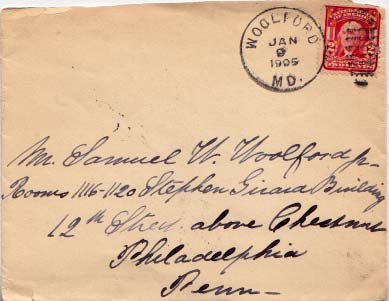 WOOLFORD
JAN
9
1905
MD.
Mr. Samuel W. Woolford Jr.
Rooms 1116-1120 Stephen Girard Building
12th Street above Chestnut
Philadelphia
Penn-